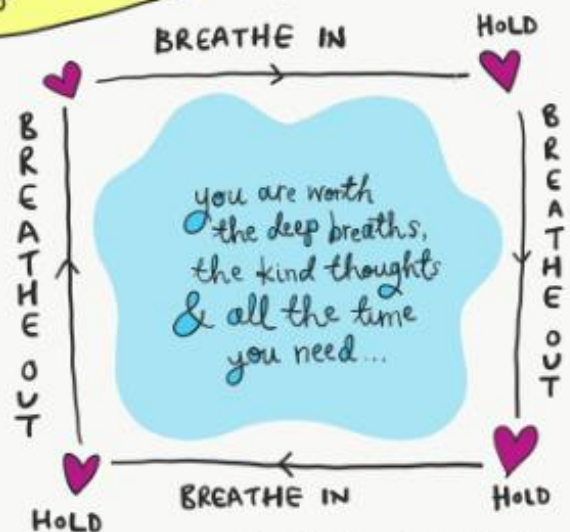 BREATHE IN
HOLD
BREATHE OUT
you are worth
the deep breaths,
the kind thoughts
& all the time
you need...
BREATHE OUT
HOLD
BREATHE IN
HOLD